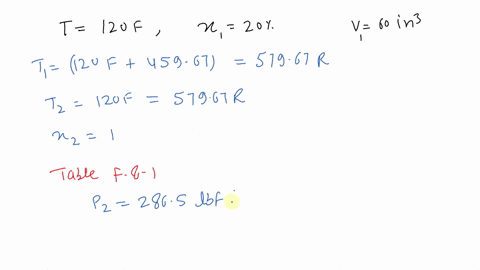 T = 120F , x₁ = 20% V₁ = 60 in³
T₁ = (120F + 459.67) = 579.67 R
T₂ = 120F = 579.67 R
x₂ = 1
Table F.8-1
P₂ = 286.5 lbf